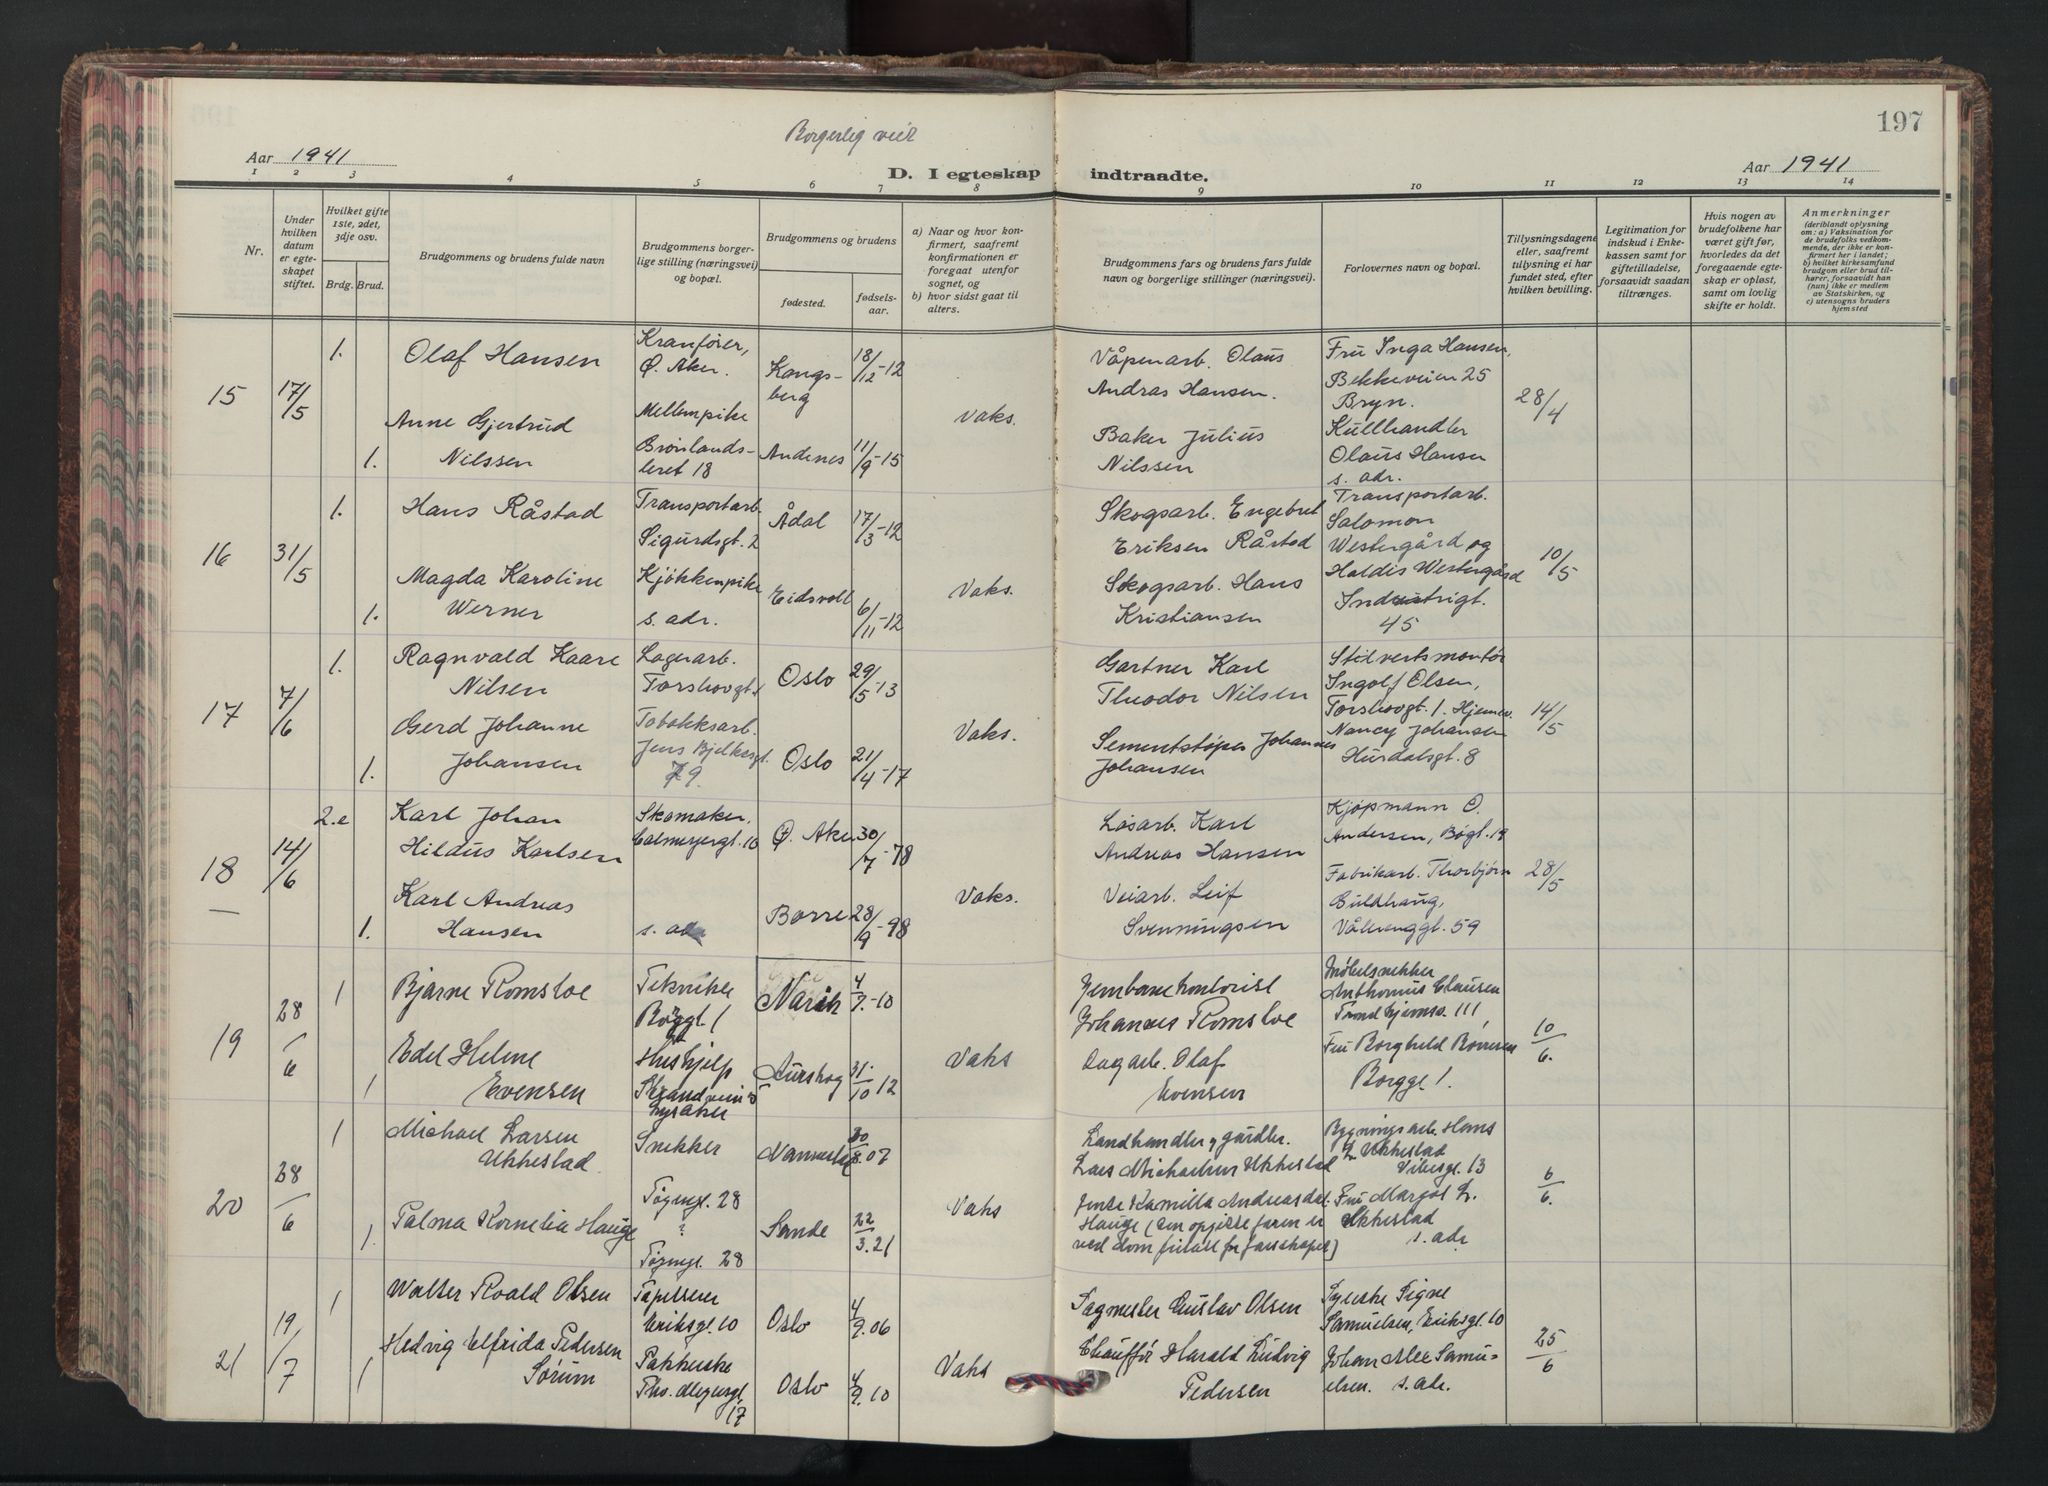 197
Borgerlig viet
Aar 1941
D. I egteskap indtraadte.
Aar 1941
1 2 3 4 5 6 7 8 9 10 11 12 13 14
Nr.
Under hvilken datum er egteskapet stiftet.
Hvilket gifte 1ste, 2det, 3dje osv.
Brdg. Brud.
Brudgommens og brudens fulde navn
Brudgommens borgerlige stilling (næringsvei) og bopæl.
Brudgommens og brudens
fødested.
fødselsaar.
a) Naar og hvor konfirmert, saafremt konfirmationen er foregaat utenfor sognet, og
b) hvor sidst gaat til alters.
Brudgommens fars og brudens fars fulde navn og borgerlige stillinger (næringsvei).
Forlovernes navn og bopæl.
Tillysningsdagene eller, saafremt tillysning ei har fundet sted, efter hvilken bevilling.
Legitimation for indskud i Enkekassen samt for giftetilladelse, forsaavidt saadan tiltrænges.
Hvis nogen av brudefolkene har været gift før, hvorledes da det foregaaende egteskap er opløst, samt om lovlig skifte er holdt.
Anmerkninger
(deriblandt oplysning om: a) Vaksination for de brudefolks vedkommende, der ikke er konfirmert her i landet; b) hvilket kirkesamfund brudgom eller brud tilhører, forsaavidt han (hun) ikke er medlem av Statskirken, og c) utensogns bruders hjemsted
15
17/5
1.
Olaf Hansen
Kranfører,
Ø. Aker.
Kongsberg
18/12-12
Våpenarb. Olaus
Andras Hansen.
Fru Inga Hansen,
Bekkeveien 25
Bryn.
28/4
1.
Anne Gjertrud
Nilssen
Mellempike
Grønlandsleret 18
Andenes
11/9-15
Vaks.
Baker Julius
Nilssen
Kullhandler
Olaus Hansen
s. adr.
16
31/5
1.
Hans Råstad
Transportarb.
Sigurdsgt. 2
Ådal
17/3-12
Skogsarb. Engebret
Eriksen Råstad
Transportarb.
Salomon
Westergård og
Haldis Westergård
Industrigt.
45
10/5
1.
Magda Karoline
Werner
Kjøkkenpike
s. adr.
Eidsvoll
6/11-12
Vaks.
Skogsarb. Hans
Kristiansen
17
7/6
1.
Ragnvald Kaare
Nilsen
Lagerarb.
Torshovgt. 1
Oslo
29/5-13
Gartner Karl
Theodor Nilsen
Ingolf Olsen,
Torshovgt. 1. Hjemev.
Nancy Johansen
Hurdalsgt. 8
14/5
1.
Gerd Johanne
Johansen
Tobakksarb.
Jens Bjelkesgt.
79.
Oslo
21/4-17
Vaks.
Sementstøper Johannes
Johansen
18
14/6
2.e
Karl Johan
Hildus Karlsen
Skomaker,
Calmeyergt. 10
Ø. Aker
30/7-78
Løsarb. Karl
Andreas Hansen
Kjøpmann O.
Andersen, Bøgt. 19
Fabrikarb. Thorbjørn
Guldhaug,
Vålrenggt. 59
28/5
1.
Karl Andreas
Hansen
s. adr
Borre
28/9-98
Vaks.
Veiarb. Leif
Svenningsen
19
28/6
1
Bjarne Romsloe
Tekniker
Narvik
4/7-10
Jernbanekontorist
Johannes Romsloe
Møbelsnekker
Anthonius Clausen
111
Fru Borghild
10/6.
1
Edel Helene
Evensen
Hushjelp
Lysaker
Aurskog
31./10 12
Vaks
Dagarb. Olaf
Evensen
20
28/6
1
Michael Larsen
Ukkestad
Snekker
Tøyengt. 28
Nannestad
30/8.07
Landhandler og gårdbr.
Lars Michaelsen Ukkestad
Bygningsarb. Hans
L. Ukkestad
Vibesgt. 13
Fru Margot L.
Ukkestad
s. adr
6/6.
1.
Palma Kornelia Hauge
?
Tøyengt. 28
Sande
22/3.21
Vaks
Jente Kamilla Andreasdat.
Hauge (Den opgitte faren er
ved dom fritatt for farskapet)
21
19/7
1
Walter Roald Olsen
Tapetserer
Eriksgt. 10
Oslo
4/9.06
Sagmester Gustav Olsen
Syerske Signe
Samuelsen, Eriksgt. 10
25/6
1
Hedvig Elfrida Pedersen
Sørum
Pakkerske
Ths. Meyersgt.
17
Oslo
4/9.10
Vaks
Chauffør Harald Ludvig
Pedersen
Johan Alee Samuelsen. s. adr.